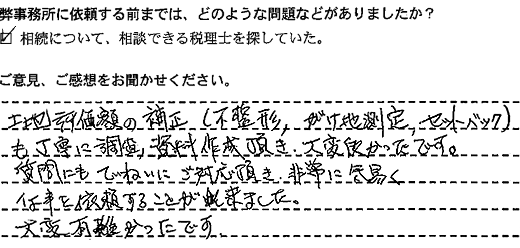 弊事務所に依頼する前までは、どのような問題などがありましたか？
☑ 相続について、相談できる税理士を探していた。
ご意見、ご感想をお聞かせください。
土地評価額の補正（不整形，がけ地測定，セットバック）
も丁寧に調査，資料作成頂き，大変良かったです。
質問にもていねいにご対応頂き，非常に気易く
仕事を依頼することが出来ました。
大変有難かったです